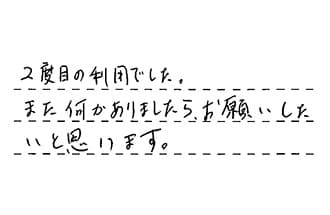 2度目の利用でした。
また何かありましたら、お願いした
いと思います。